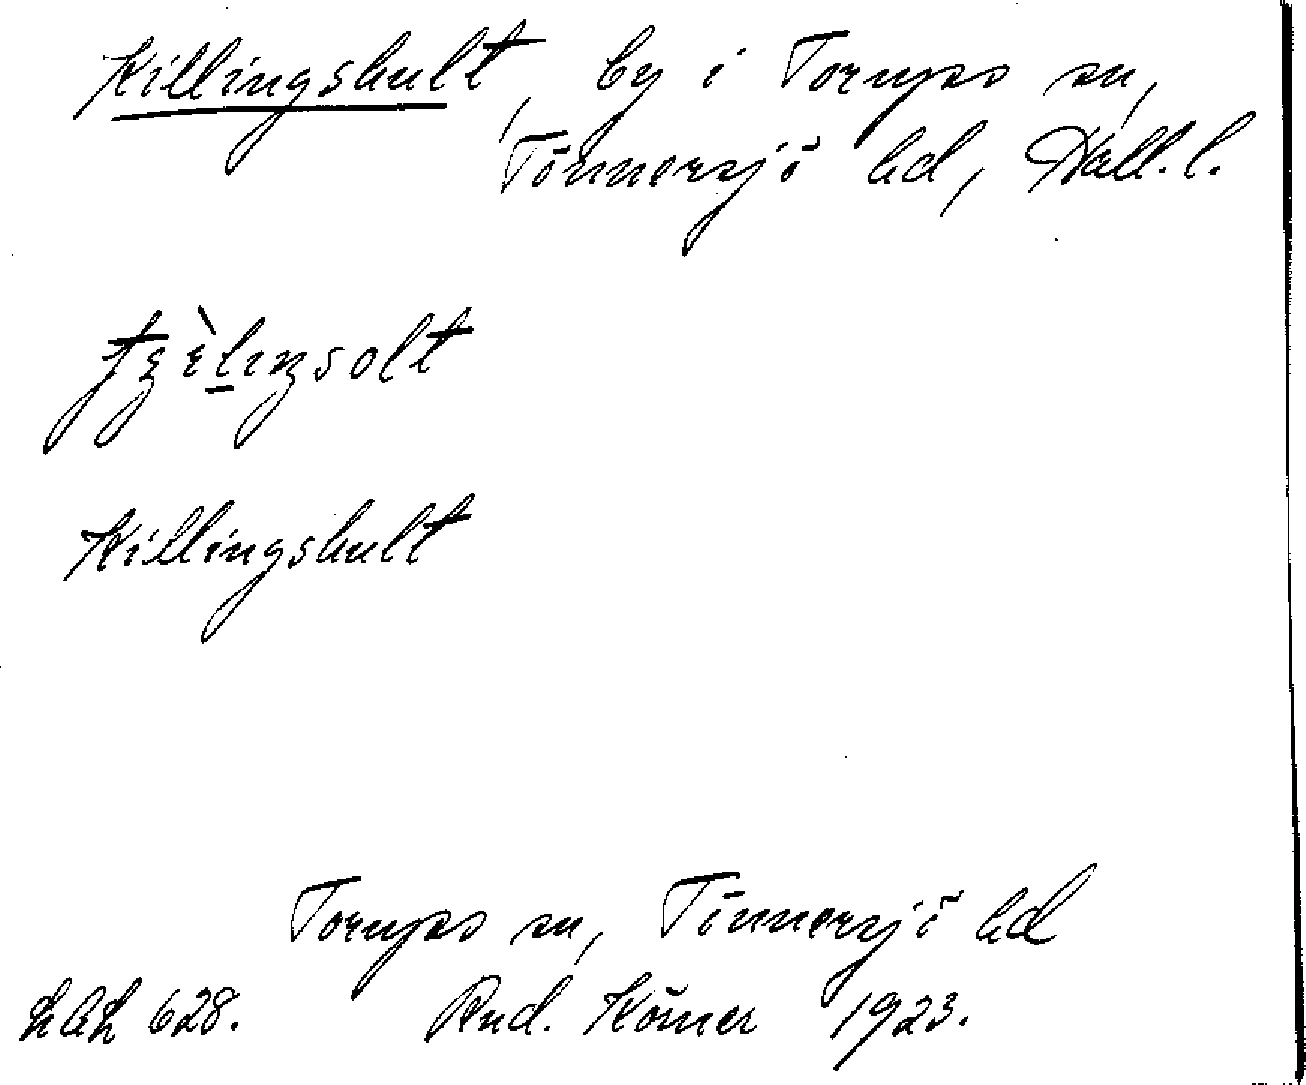 Killingshult, by i Torups sn,
Tönnersjö hd, Hall. l.
Killingshult
Torups sn, Tönnersjö hd
LAL 628. Rud. Körner 1923.